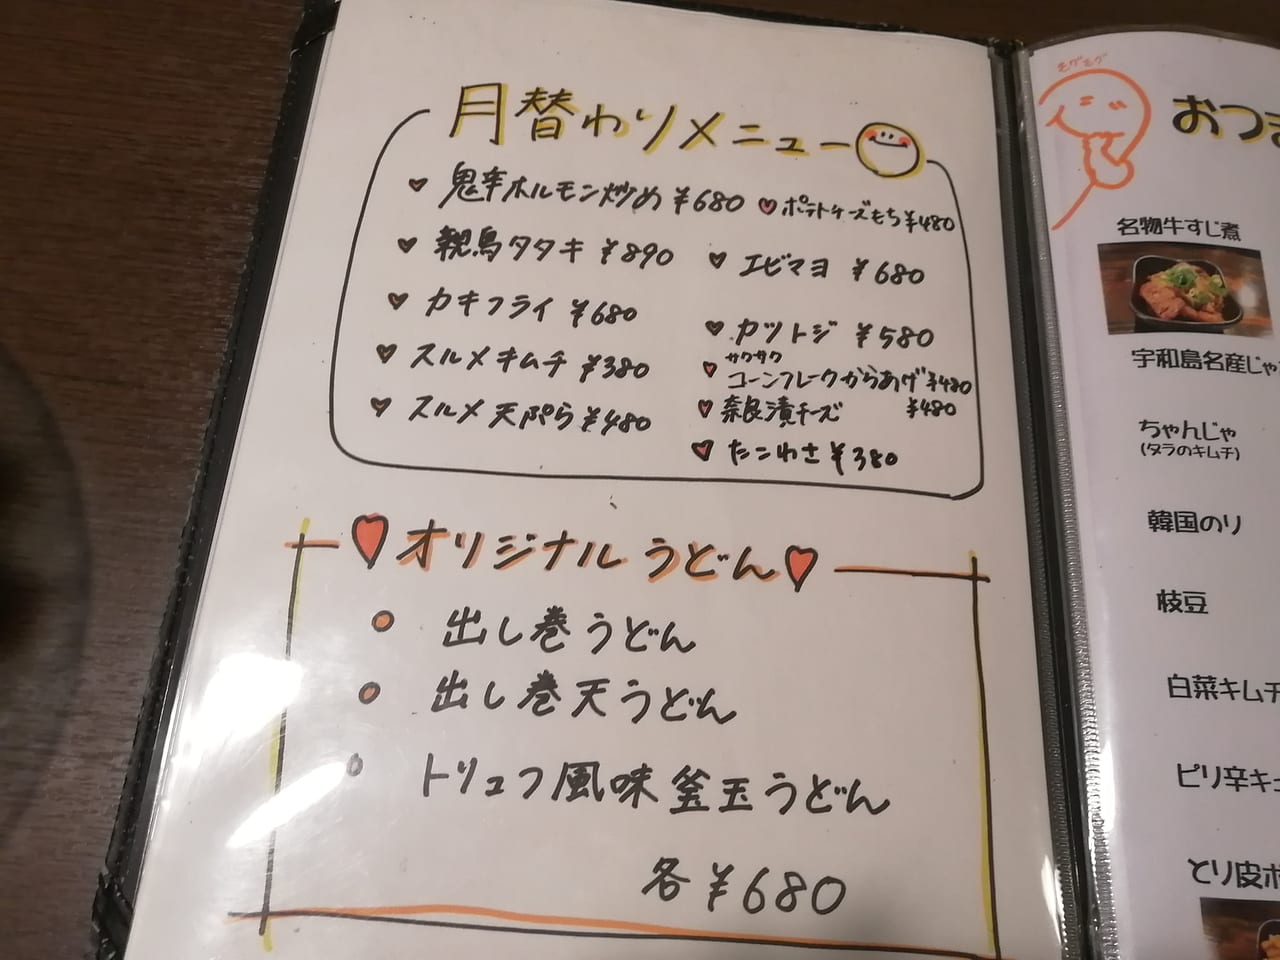 月替わりメニュー
鬼辛ホルモン炒め ¥680
親鳥タタキ ¥890
カキフライ ¥680
スルメキムチ ¥380
スルメ天ぷら ¥480
ポテトチーズもち ¥480
エビマヨ ¥680
カツトジ ¥580
サクサク
コーンフレークからあげ ¥480
奈良漬チーズ ¥480
たこわさ ¥380
オリジナルうどん
出し巻うどん
出し巻天うどん
トリュフ風味釜玉うどん
各 ¥680
モグモグ
おつま
名物牛すじ煮
宇和島名産じゃ
ちゃんじゃ
(タラのキムチ)
韓国のり
枝豆
白菜キムチ
ピリ辛キュ
とり皮ポ